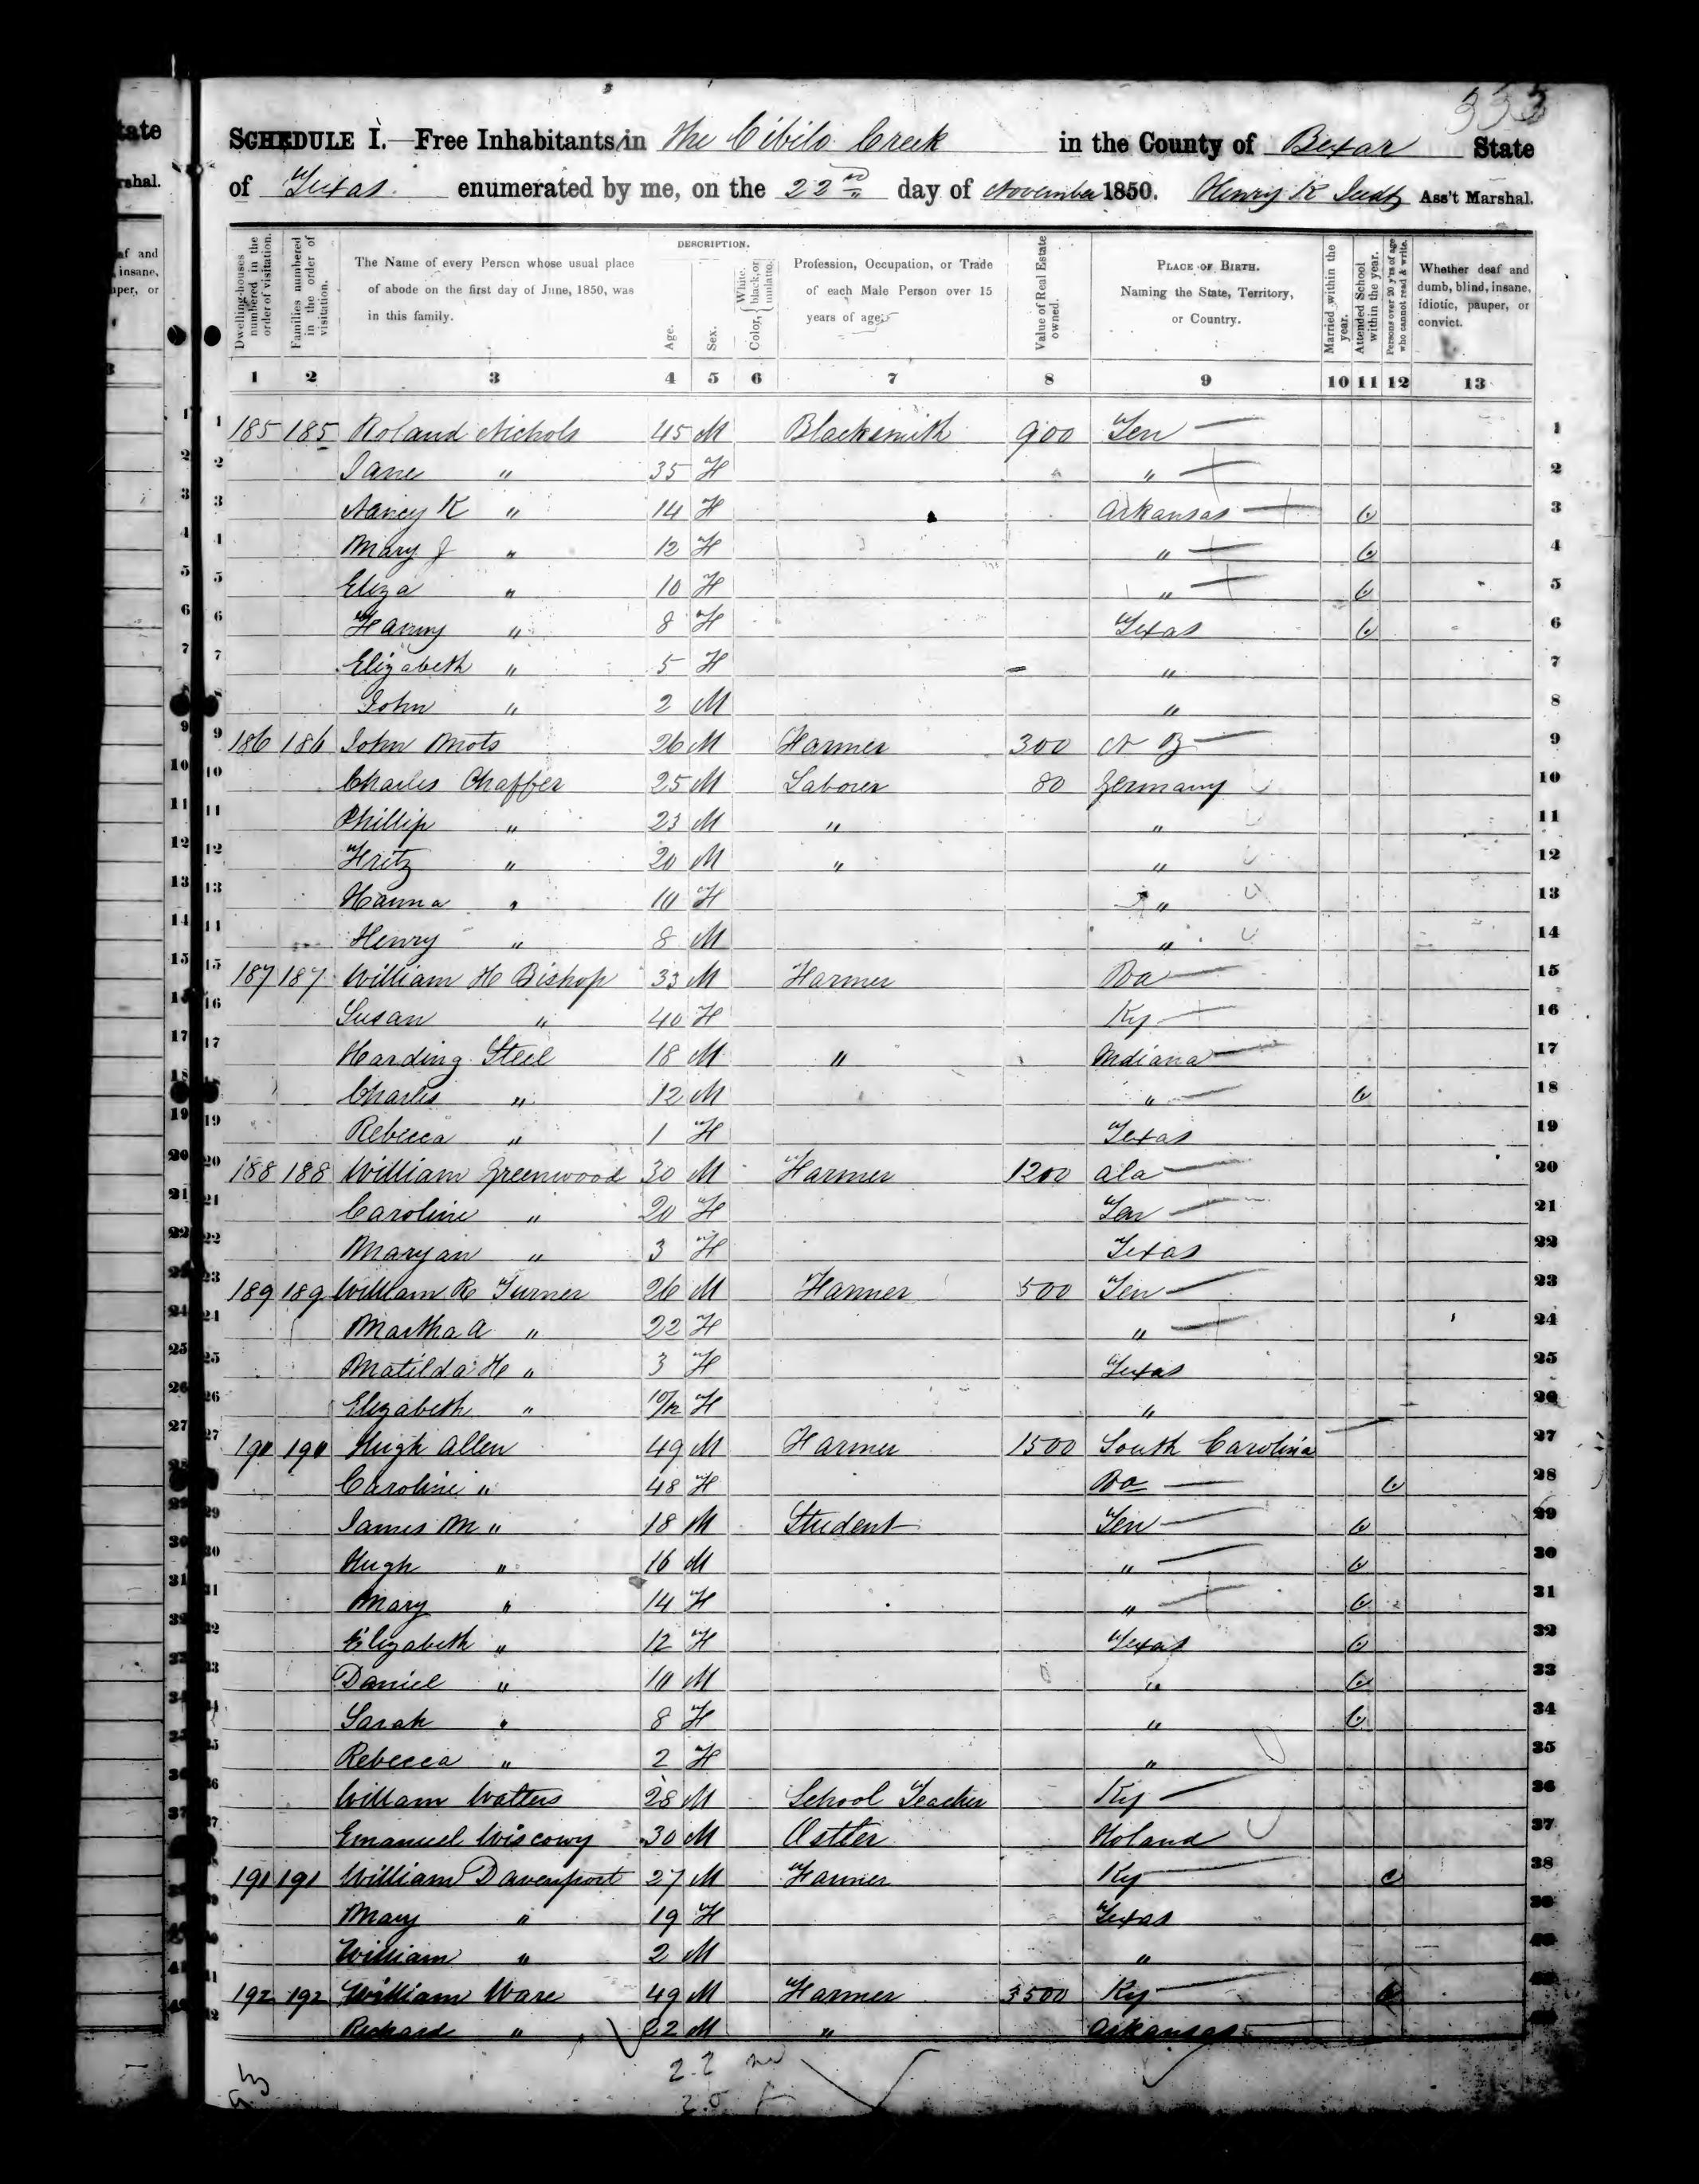 333
SCHEDULE I.—Free Inhabitants in the Cibilo Creek in the County of Bexar State
of Texas. enumerated by me, on the 22nd day of November 1850. Henry K Ass't Marshal.
DESCRIPTION.
Dwelling-houses numbered in the order of visitation.
Families numbered in the order of visitation.
The Name of every Person whose usual place of abode on the first day of June, 1850, was in this family.
Age.
Sex.
Color, { White, black, or mulatto.
Profession, Occupation, or Trade of each Male Person over 15 years of age.
Value of Real Estate owned.
PLACE OF BIRTH. Naming the State, Territory, or Country.
Married within the year.
Attended School within the year.
Persons over 20 y'rs of age who cannot read & write.
Whether deaf and dumb, blind, insane, idiotic, pauper, or convict.
1 2 3 4 5 6 7 8 9 10 11 12 13
1 185 185 Roland Nichols 45 M Blacksmith 900 Ten 1
2 Jane " 35 F " 2
3 Nancy K " 14 F Arkansas 3
4 Mary J " 12 F " 4
5 Eliza " 10 F " 5
6 Fanny " 8 F Texas 6
7 Elizabeth " 5 F " 7
8 John " 2 M " 8
9 186 186 John Mots 26 M Farmer 300 N 9
10 Charles Chaffer 25 M Laborer 80 Germany 10
11 Phillip " 23 M " " 11
12 Fritz " 20 M " " 12
13 Hanna " 10 F " 13
14 Henry " 8 M " 14
15 187 187 William H Bishop 33 M Farmer 15
16 Susan " 40 F Ky 16
17 Harding Steel 18 M " Indiana 17
18 Charles " 12 M " 18
19 Rebecca " 1 F Texas 19
20 188 188 William Greenwood 30 M Farmer 1200 Ala 20
21 Caroline " 20 F Ten 21
22 Maryan " 3 F Texas 22
23 189 189 William R Turner 26 M Farmer 500 Ten 23
24 Martha A " 22 F " 24
25 Matilda H " 3 F Texas 25
26 Elizabeth " 10/12 F " 26
27 190 190 Hugh Allen 49 M Farmer 1500 South Carolina 27
28 Caroline " 48 F Do 28
29 James M " 18 M Student Ten 29
30 Hugh " 16 M " 30
31 Mary " 14 F " 31
32 Elizabeth " 12 F Texas 32
33 Daniel " 10 M " 33
34 Sarah " 8 F " 34
35 Rebecca " 2 F " 35
36 William Walters 28 M School Teacher Ky 36
37 Emanuel Wiscowy 30 M Ostler Holand 37
38 191 191 William Davenport 27 M Farmer Ky 38
39 Mary " 19 F Texas 39
40 William " 2 M " 40
41 192 192 William Ware 49 M Farmer 3500 Ky 41
42 Richard " 22 M " Arkansas 42
22 m
20 f